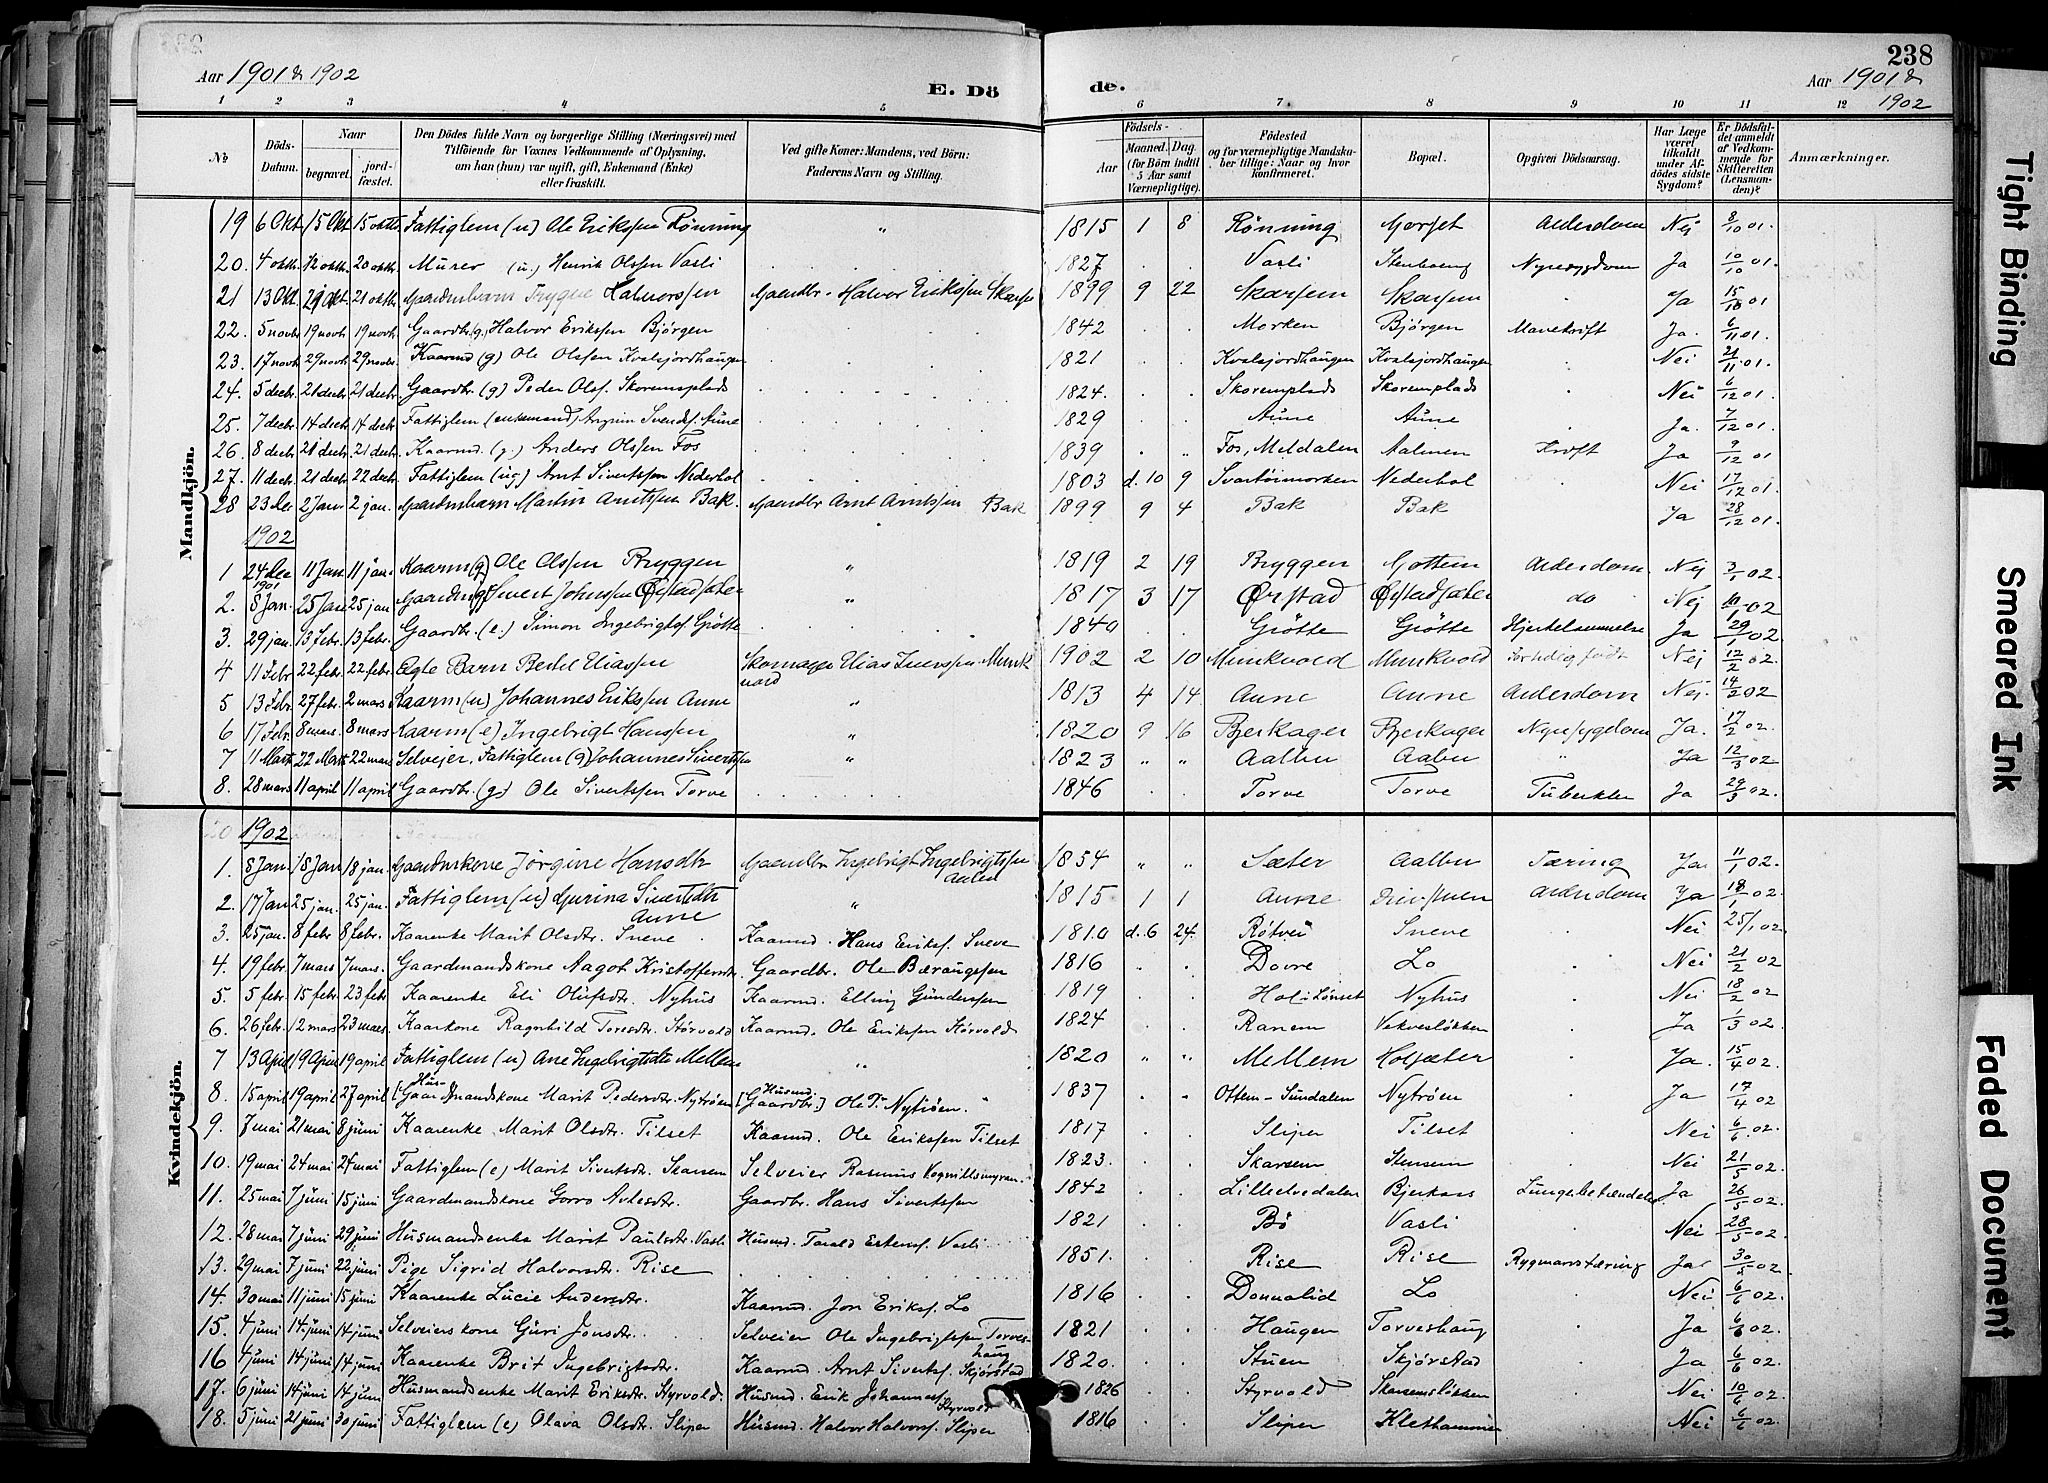 Aar 1901 & 1902
E. Dö
de.
238
Aar 1901 &
1902
1 2 3 4 5 6 7 8 9 10 11 12
№
Döds-Datum.
Naar
begravet.
jordfæstet.
Den Dödes fulde Navn og borgerlige Stilling (Næringsvei) med
Tilföiende for Voxnes Vedkommende af Oplysning,
om han (hun) var ugift, gift, Enkemand (Enke)
eller fraskilt.
Ved gifte Koner: Mandens, ved Börn:
Faderens Navn og Stilling.
Födsels-
Aar
Maaned. Dag.
(for Börn indtil
5 Aar samt
Værnepligtige).
Födested
og for værnepligtige Mandskaber tillige: Naar og hvor
konfirmeret.
Bopæl.
Opgiven Dödsaarsag.
Har Læge
været
tilkaldt
under Afdödes sidste
Sygdom?
Er Dödsfaldet anmeldt
af Vedkommende for
Skifteretten
(Lensmanden)?
Anmærkninger.
Mandkjön.
19 6 Okt 15 Okt 15 oktb Fattiglem (u) Ole Eriksen Rönning " 1815 1 8 Rönning Gorset Alderdom Nej 8/10 01.
20. 4 oktb. 12 oktb. 20 oktb. Murer (u.) Henrik Olssen Vasli 1827 Vasli Stenboeng Nyresygdom Ja 10/10 01.
21 13 Okt. 21 Okt 21 oktb Gaardmbarn Trygve Halvorssen Gaardbr. Halvor Erikssen Skarsem 1899 9 22 Skarsem Skarsem Ja 15/10 01
22. 5 novb. 19 novb. 19 novb. Gaardbr. (g.) Halvor Erikssen Bjørgen 1842 Morken Bjørgen Mavekræft Ja. 6/11 01.
23. 17 novb. 29 novb. 29 novbr. Kaarmd (g) Ole Olssen Kvalsjordhaugen 1821 Kvalsjordhaugen Kvalsjordhaugen Nei 21/11 01.
24. 5 decb. 21 decbr. 21 decb. Gaardbr. (g) Peder Olss. Skoremsplads 1824. Skoremplads Skoremplads Nei 6/12 01
25. 7 decbr. 14 decb 14 decb Fattiglem (enkemand) Svends. Aune 1829 Aune Aune Ja. 7/12 01.
26 8 decb 21 decbr. 21 decb. Kaarmd. (g.) Anders Olssen Fos 1839 Fos, Meldalen Aalmen Kræft Ja 9/12 01
27. 11 decb 21 decb 22 decb. Fattiglem (ug) Arnt Sivertssen Nederhol 1803 d. 10 9 Svartöimorken Nederhol Nei 17/12 01.
28 23 Dec 2 Jan 2 jan. Gaardmbarn Martin Arntssen Bak. Gaardbr Arnt Arntssen Bak 1899 9 4 Bak Bak Ja 28/12 01.
1902
1 24 Dec 1901 11 Jan 11 jan. Kaarm (g) Ole Olssen Bryggen " 1819 2 19 Bryggen Gottem Alderdom Nej 3/1 02.
2. 8 Jan. 25 Jan 25 jan Gaardm (g) Sivert Johnssen Ørstadsæter " 1817 3 17 Ørstad Ørstadsæter do Nej 10/1 02
3. 29 jan. 13 febr. 13 febr. Gaardbr. (e.) Simon Ingebrigts. Grötte 1840 Grötte Grötte Hjertelammelse Ja 29/1 02
4 11 Febr 22 febr. 22 febr. Ægte Barn Bertel Eliassen Skomager Elias Iverssen Munkvold 1902 2 10 Munkvold Munkvold for tidlig født Nej 12/2 02.
5 13 Febr. 27 febr. 2 mars Kaarm (u) Johannes Erikssen Aune " 1813 4 14 Aune Aune Alderdom Nej. 14/2 02
6 17 Febr. 8 mars. 8 mars Kaarm (e) Ingebrigt Hanssen " 1820 9 16 Bjerkager Bjerkager Nyresygdom Ja. 17/2 02.
7 11 Marts 22 Marts 22 mars Selvejer, Fattiglem (g) Johannes Sivertssen " 1823 " " Aalbu Aalbu " Ja 12/3 02
8. 28 mars 11 april 11 april Gaardbr. (g.) Ole Sivertssen Torve 1846 Torve Torve Tuberkler Ja 29/3 02.
Kvindekjön.
1902
1. 8 Jan. 18 Jan 18 jan. Gaardmkone Jørgine Hansdtr Gaardbr Ingebrigt Ingebrigtssen Aalbu 1854 " " Sæter Aalbu Tæring Ja 11/1 02.
2. 17 Jan 25 jan. 25 jan. Fattiglem (u) Gjurina Sivertsdtr Aune " 1815 1 1 Aune Alderdom Ja 18/1 02.
3. 25 jan. 8 febr 8 febr. Kaarenke Marit Olsdtr. Sneve Kaarmd. Hans Erikss. Sneve 1810 d. 6 24. Rötvei Sneve Nei 25/1 02
4. 19 febr. 7 mars 7 mars. Gaardmandskone Aagot Kristoffersdtr. Gaardbr. Ole Bæraugssen 1816 Dovre Lo Nei 21/2 02
5. 5 febr. 15 febr. 23 febr Kaarenke Eli Olufsdtr. Nyhus Kaarmd. Elling Gunderssen 1819 Hol i Lönset Nyhus Nei 18/2 02
6. 26 febr. 12 mars 23 mars Kaarkone Ragnhild Toresdtr. Störvold Kaarmd. Ole Erikssen Störvold 1824 Ranem Vekveslökken Ja 1/3 02
7 13 April 19 April 19 april Fattiglem (u) Ane Ingebrigtsdtr Mellem " 1820 " " Mellem Holsæter Ja. 15/4 02.
8. 15 april 19 april 27 april Hus- [Gaard]mandskone Marit Pedersdtr. Nytröen Husmd. [Gaardbr.] Ole P. Nytröen. 1837 Ottem - Sundalen Nytröen Ja 17/4 02
9. 7 mai 21 mai 8 juni Kaarenke Marit Olsdtr. Tilset Kaarmd. Ole Erikssen Tilset 1817 Sliper Tilset Nei 6/6. 02.
10. 19 mai 24 mai 24 mai Fattiglem (e) Marit Sivertsdtr. Skansem Selveier Rasmus Vognillsmyren. 1823. Skarsem Stensem Nei 21/5 02.
11. 25 mai 7 juni 15 juni Gaardmandskone Gorro Avlesdtr. Gaardbr. Hans Sivertssen 1842 Lilleelvedalen Bjerkaas Lungebetændelse Ja 26/5 02.
12. 28 mai 7 juni 29 juni Husmandsenke Marit Paulsdtr. Vasli Husmd. Torald Estens. Vasli 1821 Bö Vasli Nei 28/5 02.
13. 29 mai 7 juni 22 juni Pige Sigrid Halvorsdtr. Rise 1851. Rise Rise Rygmarvstæring Ja 30/5 02.
14. 30 mai 11 juni 15 juni Kaarenke Lucie Andersdtr. Kaarmd. Jon Erikss. Lo 1816 Donnalid Lo Nei 6/6 02.
15. 4 juni 14 juni 14 juni Selveierskone Guri Jonsdtr. Selveier Ole Ingebrigtssen Torveshaug 1821 Haugen Torveshaug Ja 6/6 02.
16 4 juni 14 juni 14 juni Kaarenke Brit Ingebrigtsdtr. Kaarmd. Arnt Siverts. Skjörstad 1820. Stuen Skjörstad Ja 6/6 02.
17. 6 juni 14 juni 14 juni Husmandsenke Marit Eriksdtr. Styrvold. Husmd. Erik Johanness. Styrvold 1826 Styrvold Skansemslökken Nei 10/6 02.
18. 5 juni 21 juni 30 juni Fattiglem (e) Olava Olsdtr. Sliper Husmd. Halvor Halvors. Sliper 1816 Sliper Klethammer Nei 6/6 02.
Tight Binding
Smeared Ink
Faded Document